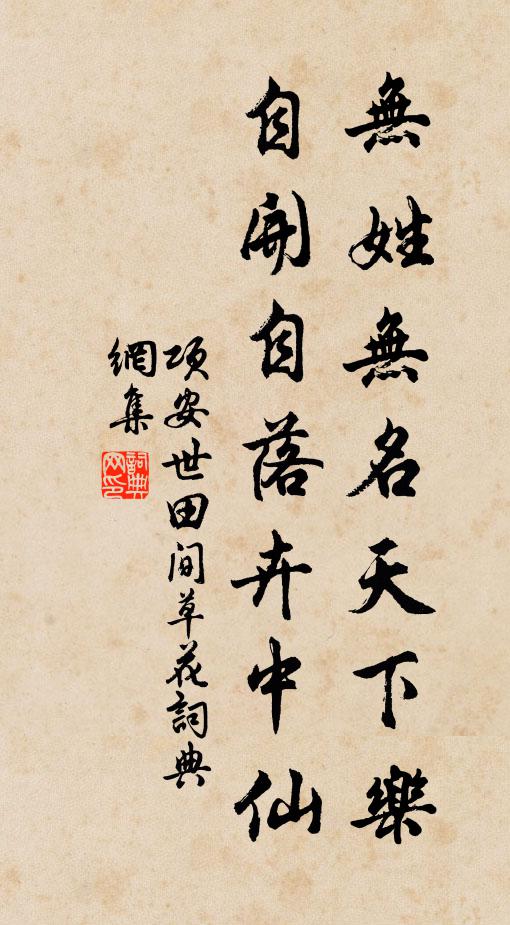 無姓無名天下樂
自開自落卉中仙
項安世田間草花詞典
網集
詞典網印